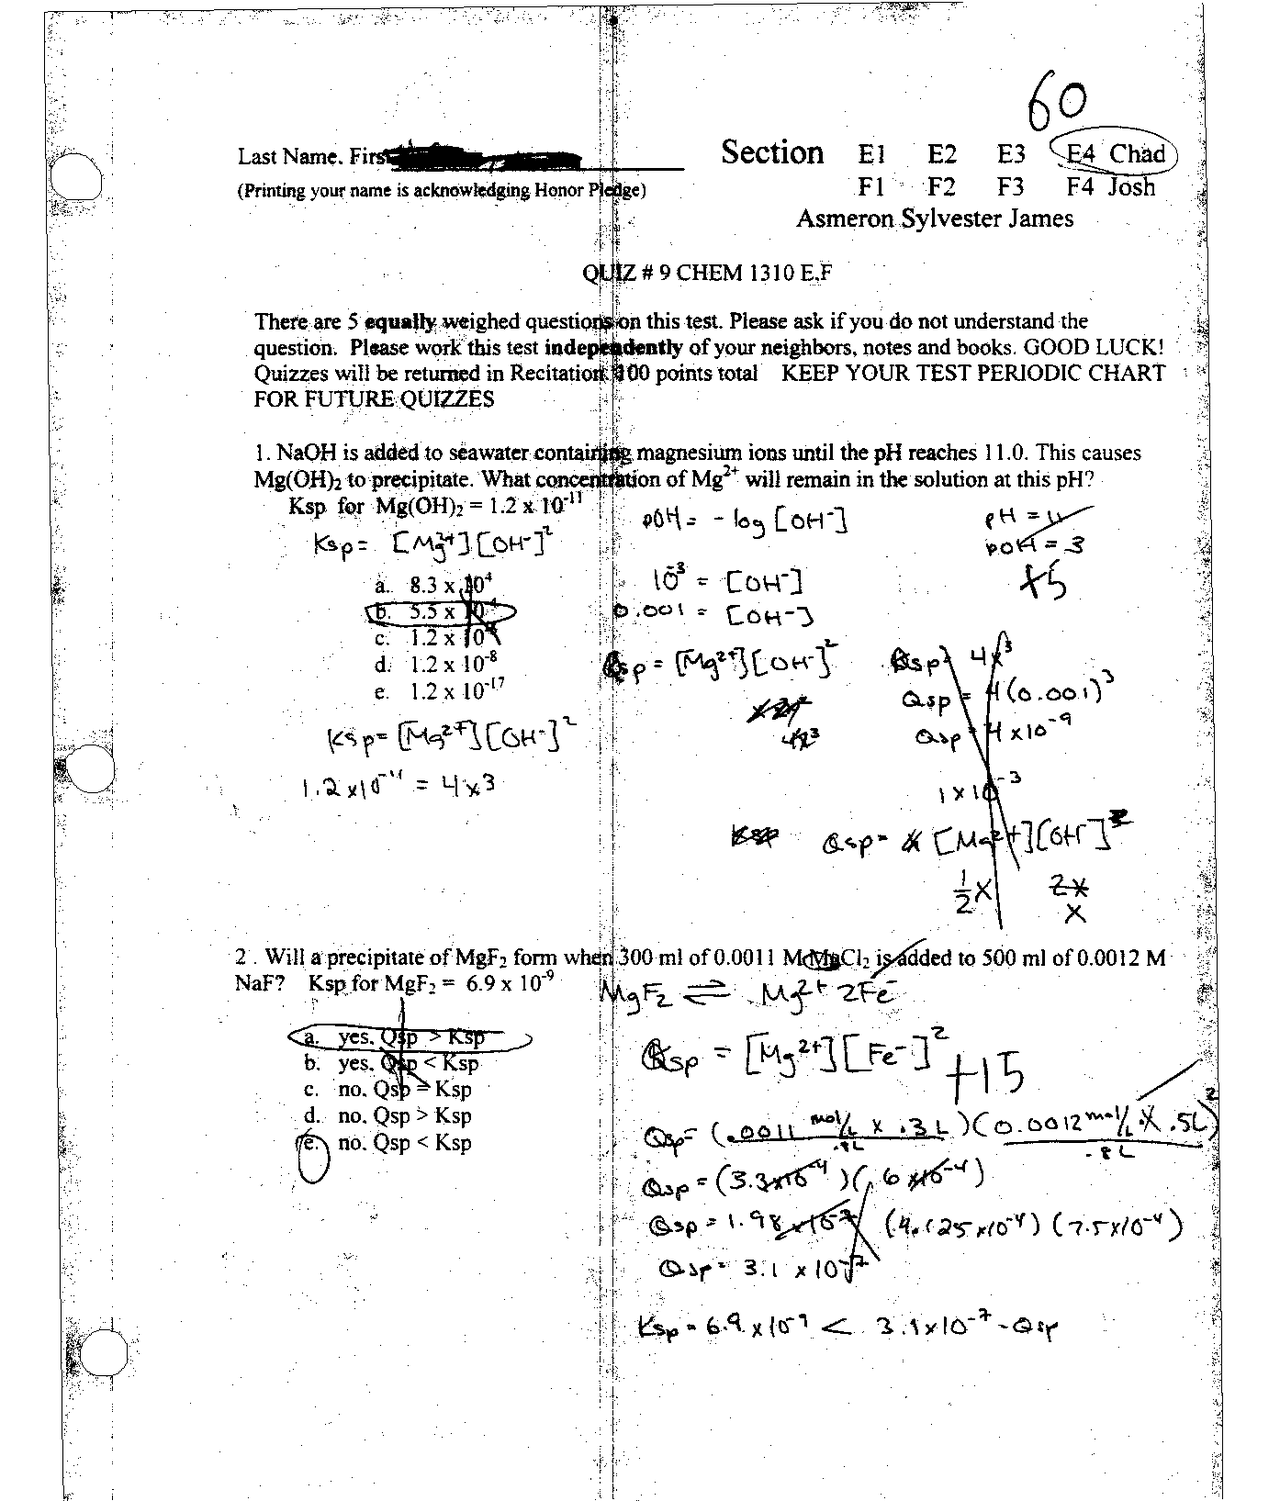 60
Last Name, First
Section E1 E2 E3 E4 Chad
(Printing your name is acknowledging Honor Pledge) F1 F2 F3 F4 Josh
Asmeron Sylvester James
QUIZ # 9 CHEM 1310 E,F
There are 5 equally weighed questions on this test. Please ask if you do not understand the
question. Please work this test independently of your neighbors, notes and books. GOOD LUCK!
Quizzes will be returned in Recitation. 100 points total KEEP YOUR TEST PERIODIC CHART
FOR FUTURE QUIZZES
1. NaOH is added to seawater containing magnesium ions until the pH reaches 11.0. This causes
Mg(OH)₂ to precipitate. What concentration of Mg²⁺ will remain in the solution at this pH?
Ksp for Mg(OH)₂ = 1.2 x 10⁻¹¹
Ksp = [Mg²⁺][OH⁻]²
a. 8.3 x 10⁴
b. 5.5 x 10⁻⁴
c. 1.2 x 10
d. 1.2 x 10⁻⁸
e. 1.2 x 10⁻¹⁷
Ksp = [Mg²⁺][OH⁻]²
1.2 x 10⁻¹¹ = 4x3
pOH = - log [OH⁻]
10⁻³ = [OH⁻]
0.001 = [OH⁻]
Qsp = [Mg²⁺][OH⁻]²
4x³
pH = 11
pOH = 3
+5
Qsp = 4x³
Qsp = 4(0.001)³
Qsp = 4 x 10⁻⁹
1 x 10⁻³
Ksp Qsp = [Mg²⁺][OH⁻]²
½x 2x
x
2 . Will a precipitate of MgF₂ form when 300 ml of 0.0011 M MgCl₂ is added to 500 ml of 0.0012 M
NaF? Ksp for MgF₂ = 6.9 x 10⁻⁹
MgF₂ ⇌ Mg²⁺ 2Fe⁻
a. yes, Qsp > Ksp
b. yes, Qsp < Ksp
c. no, Qsp = Ksp
d. no, Qsp > Ksp
e. no, Qsp < Ksp
Qsp = [Mg²⁺][Fe⁻]²
+15
Qsp = (.0011 mol/L x .3 L)(0.0012 mol/L x .5L)²
.8L .8L
Qsp = (3.3x10⁻⁴)(6x10⁻⁴)
Qsp = 1.98 x 10⁻⁷ (4.125x10⁻⁴)(7.5x10⁻⁴)
Qsp = 3.1 x 10⁻⁷
Ksp = 6.9 x 10⁻⁹ < 3.1x10⁻⁷ = Qsp